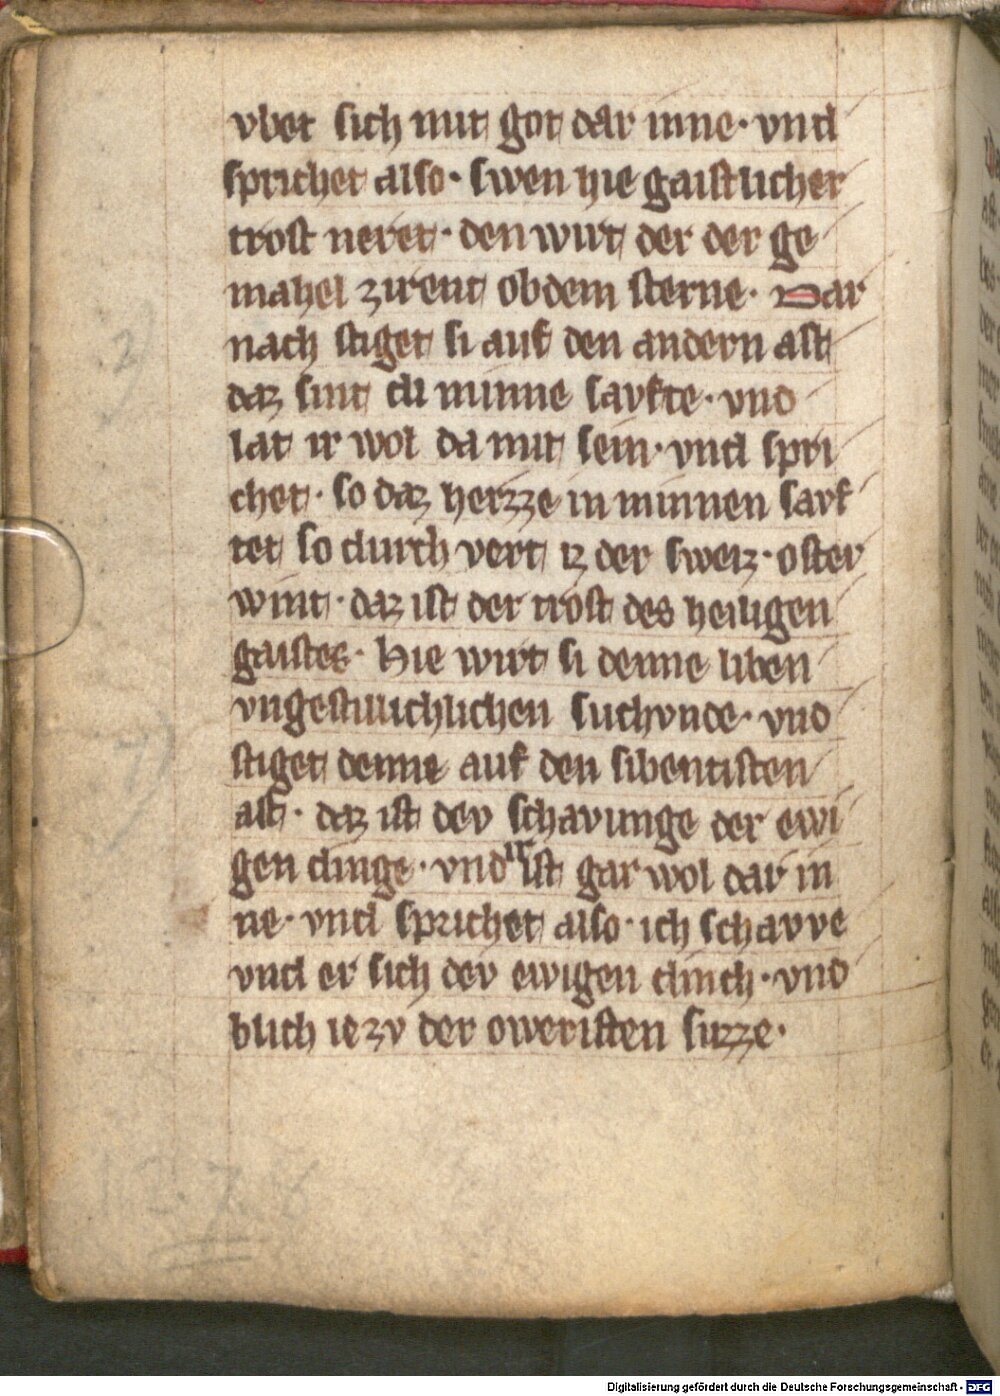 vbet sich mit got dar inne· vnd
sprichet also· swen hie gaistlicher
trost neret· den wirt der der ge
mahel zirent ob dem sterne· Dar
nach stiget si auf den andern ast
daz sint di minne savfte· vnd
lat ir wol da mit sein· vnd spri
chet· so daz herzze in minnen savf
tet so durch vert iz der sweiz· oster
wint· daz ist der trost des heiligen
gaistes· Hie wirt si denne liben
vngestillichlichen suchvnde· vnd
stiget denne auf den sibentisten
ast· daz ist dev schavunge der ewi
gen dinge· vnd ir ist gar wol dar in
ne· vnd sprichet also· ich schavve
vnd er sich dev ewigen dinch· vnd
blich ie zv der oweristen suzze·
2
7
Digitalisierung gefördert durch die Deutsche Forschungsgemeinschaft - DFG